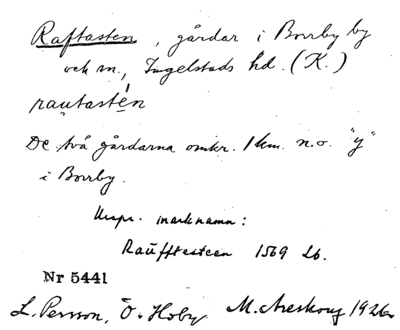 Raftasten, gårdar i Borrby by
och sn., Ingelstads hd. (K.)
rautastén
De två gårdarna omkr. 1 km. n.o. "y"
i Borrby.
Urspr. marknamn:
Raufftesteen 1569 Lb.
Nr 5441
L. Persson, Ö. Hoby M. Areskoug 1926